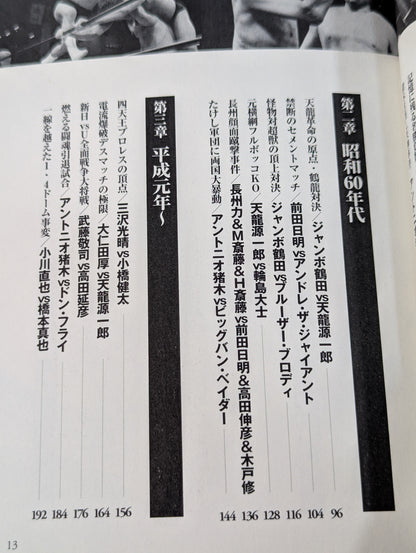 第二章 昭和60年代
天龍革命の原点・鶴龍対決/ジャンボ鶴田vs天龍源一郎 96
禁断のセメントマッチ/前田日明vsアンドレ・ザ・ジャイアント 104
怪物対超獣の頂上対決/ジャンボ鶴田vsブルーザー・ブロディ 116
元横綱フルボッコKO/天龍源一郎vs輪島大士 128
長州顔面蹴撃事件/長州力&M斎藤&H斎藤vs前田日明&高田伸彦&木戸修 136
たけし軍団に両国大暴動/アントニオ猪木vsビッグバン・ベイダー 144
第三章 平成元年〜
四天王プロレスの頂点/三沢光晴vs小橋健太 156
電流爆破デスマッチの極限/大仁田厚vs天龍源一郎 164
新日vsU全面戦争大将戦/武藤敬司vs高田延彦 176
燃える闘魂引退試合/アントニオ猪木vsドン・フライ 184
一線を越えた1・4ドーム事変/小川直也vs橋本真也 192
13